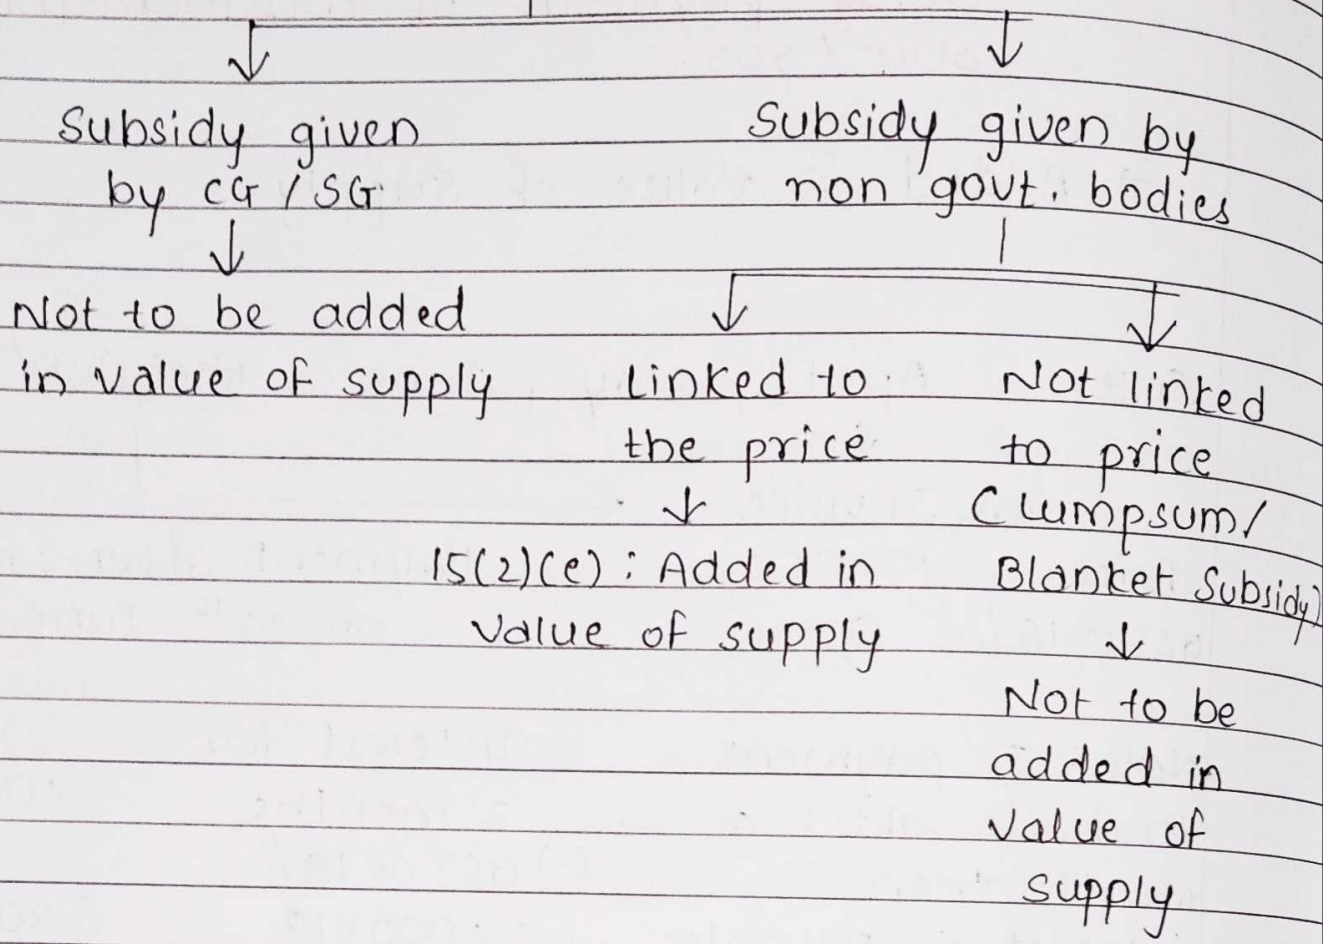 Subsidy given
by CG / SG
Not to be added
in value of supply
Subsidy given by
non govt. bodies
Linked to
the price
15(2)(e) : Added in
value of supply
Not linked
to price
(Lumpsum/
Blanket Subsidy)
Not to be
added in
value of
supply